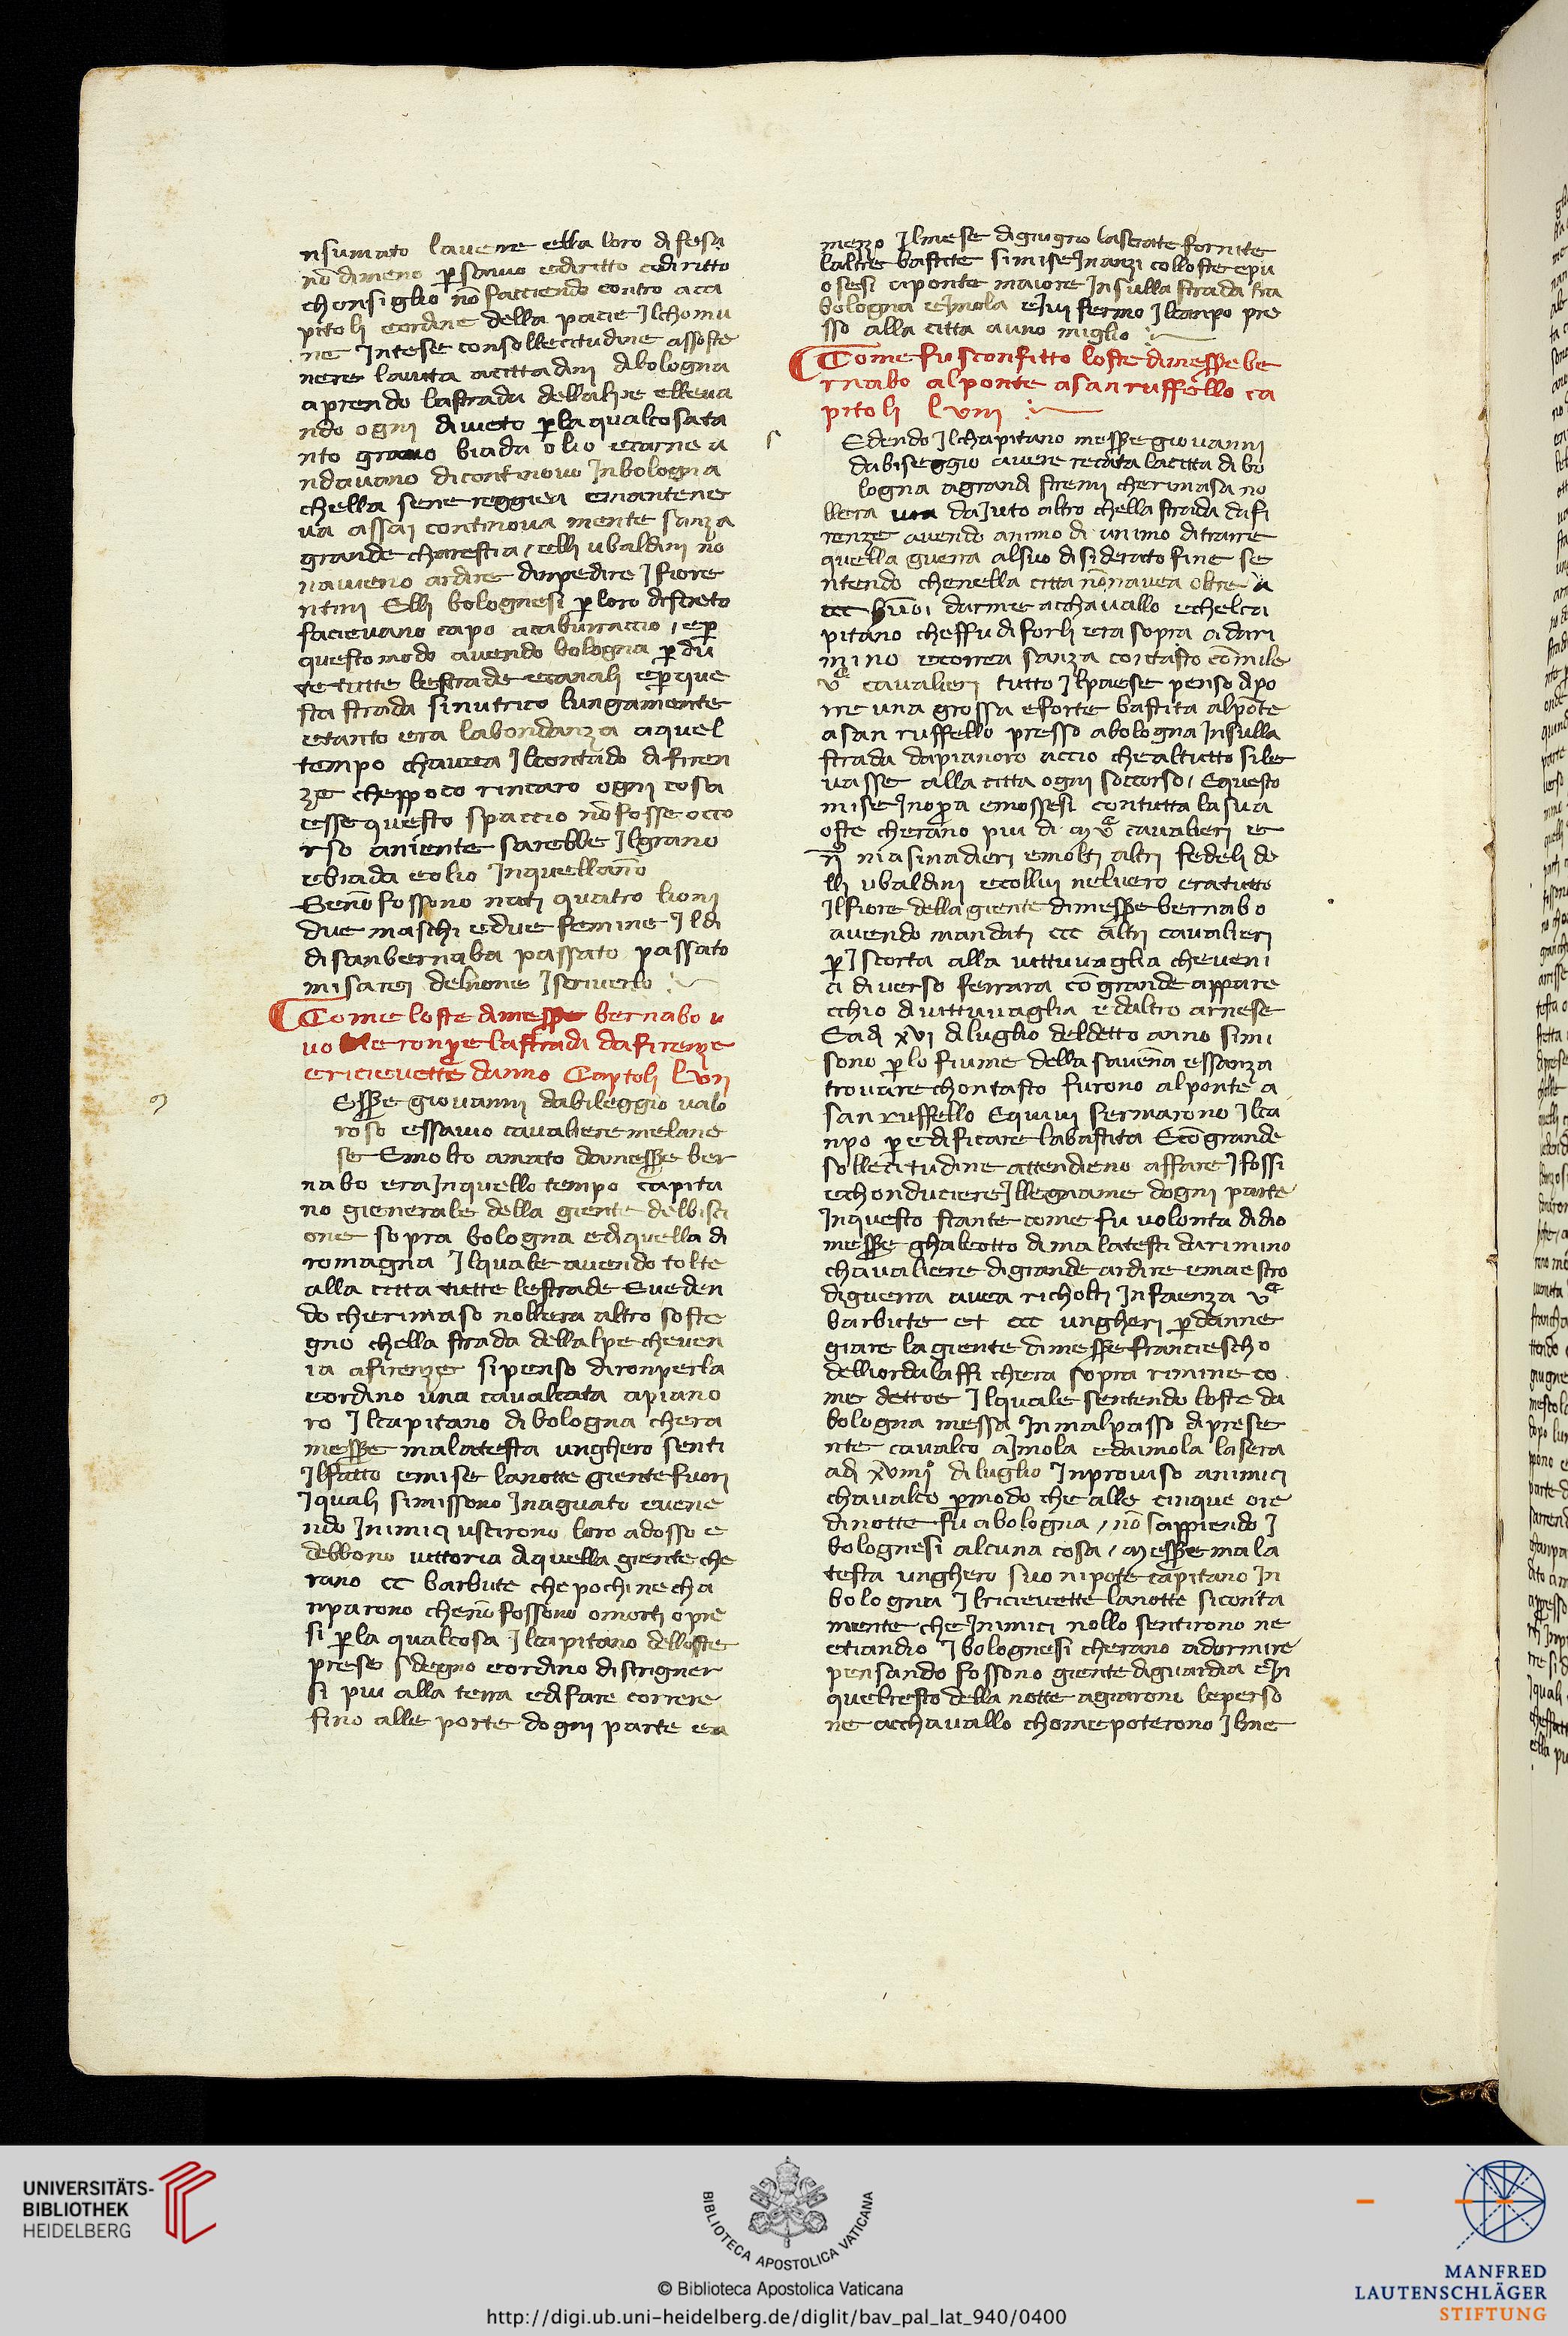 nsumato lavere ella loro difesa
nō dimeno ꝑ savio ediritto ediritto
chonsiglio nō facciendo contro aca
pitoli eordine della pacie Ilchomu
ne Intese consollecitudine assoste
nere lavita acittadini dibologna
aprendo lastrada dellalpe elleva
ndo ogni divieto ꝑ laqualcosa ta
nto grano biada olio ecarne a
ndavano dicontinovo Inbologna
chella sene reggiea emantene
va assai continova mente sanza
grande charestia / elli ubaldini nō
navieno ardire dinpedire I fiore
ntini Elli bolognesi ꝑ loro distreto
facievano capo acaburraccio / e ꝑ
questo modo avendo bologna ꝑ du
te tutte lestrade ecanali e ꝑ que
sta strada sinutrico lungamente
etanto era labondanza aquel
tempo chavea Ilcontado difiren
ze cheppoco rincaro ogni cosa
cesse questo spaccio nō fosse occo
rso aniente sarebbe Ilgrano
ebiada eolio Inquellāno
Senō fossono nati quatro lioni
due maschi edue femine Ildi
disanbernaba passato passato
misarei delnone Iscriverlo
Come loste dimesse bernabo v
uo le ronpe lastrada dafirenze
ericievette danno Capitoli lvij
Esse giovanni dabileggio valo
roso essavio cavaliere melane
se Emolto amato damesse ber
nabo era Inquello tempo capita
no gienerale della giente delbisci
one sopra bologna ediquella di
romagna Ilquale avendo tolte
alla citta tutte lestrade Eveden
do cherimaso nollera altro soste
gno chella strada dellalpe cheven
ia afirenze sipenso dironperla
eordino una cavalcata apiano
ro Ilcapitano dibologna chera
messe malatesta unghero senti
Ilfatto emise lanotte giente fuori
Iquali simissono Inaguato evene
ndo Inimici uscirono loro adosso e
debbono vittoria diquella giente che
rano cc barbute che pochi necha
nparono chenō fossono omorti opre
si ꝑ la qualcosa Ilcapitano delloste
prese sdegno eordino distrigner
si piu alla terra edifare correre
fino alle porte dogni parte ea
mezzo Ilmese digiugno lasciate fornite
laltre bastite simise Inanzi colloste epu
osesi aponte maiore Insulla strada tra
bologna eImola eIvi fermo Ilcanpo pre
sso alla citta auno miglio
Come fu sconfitto loste dimesse be
rnabo alponte asanruffello ca
pitoli lviii
Edendo Ilchapitano messe giovanni
dabiseggio avere recata lacitta dibo
logna agrandi stremi cherimasa no
llera via daIuto altro chella strada dafi
renze avendo animo di animo ditrarre
quella guerra alsuo disiderato fine se
ntendo chenella citta nō navea oltre a
ccc huōi darme acchavallo echelca
pitano cheffu diforli era sopra adari
mino ecorrea sanza contasto cō mile
vᶜ cavalieri tutto Ilpaese penso dipo
rre una grossa eforte bastita alpōte
asan ruffello presso abologna Insulla
strada dapianoro accio chealtutto sile
vasse alla citta ogni soccorso / Equesto
mise Inopꝑa emossesi contutta lasua
oste cherano piu di m vᶜ cavalieri e
masinadieri emolti altri fedeli de
lli ubaldini ecollui nelvero eratutto
Ilfiore della giente dimesse bernabo
avendo mandati ccc altri cavalieri
ꝑ Iscorta alla vittuvaglia cheveni
a diverso ferrara cō grande appare
cchio divittuvaglia edaltro arnese
Eadi xvi diluglio deldetto anno simi
sono ꝑ lo fiume della savena essanza
trovare chontasto furono alponte a
san ruffello Equivi fermarono Ilca
npo ꝑ edificare labastita Ecō grande
sollecitudine attendieno affare Ifossi
echonduciere Illegname dogni parte
Inquesto stante come fu volonta didio
messe ghaleotto dimalatesti darimino
chavaliere digrande ardire emaestro
diguerra avea richolti Infaenza vᶜ
barbute et ccc ungheri ꝑ danne
giare lagiente dimesse franciescho
delliordalaffi chera sopra rimine co
me dettoe Ilquale sentendo loste da
bologna messa Inmalpasso diprese
nte cavalco aImola edaimola lasera
adi xviiij diluglio Inproviso animici
chavalco ꝑ modo che alle cinque ore
dinotte fu abologna / nō sappiendo I
bolognesi alcuna cosa / messe mala
testa unghero suo nipote capitano In
bologna Ilricievette lanotte siconta
mente che Inimici nollo sentirono ne
etiandio Ibolognesi cherano adormire
pensando fossono giente diguardia eIn
quelresto della notte agiarono leperso
ne acchavallo chome poterono Ilme
UNIVERSITÄTS-
BIBLIOTHEK
HEIDELBERG
BIBLIOTECA APOSTOLICA VATICANA
© Biblioteca Apostolica Vaticana
http://digi.ub.uni-heidelberg.de/diglit/bav_pal_lat_940/0400
MANFRED
LAUTENSCHLÄGER
STIFTUNG